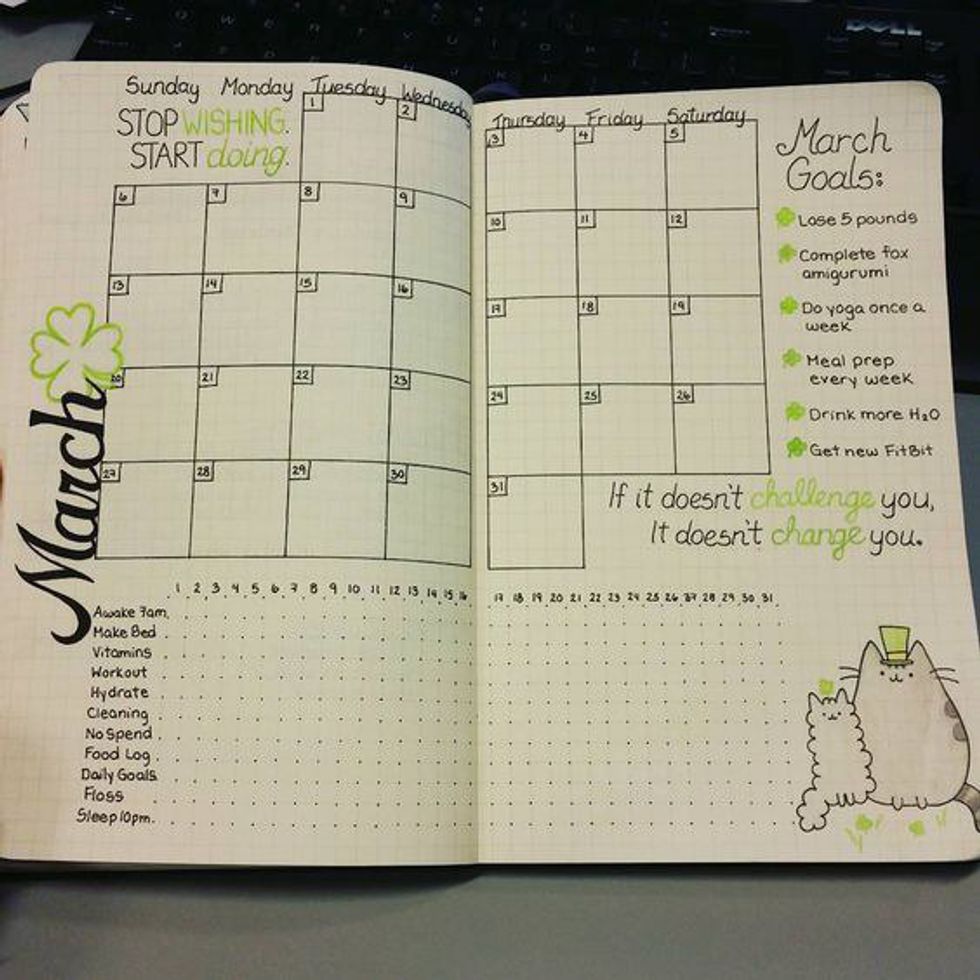 DELL
Sunday Monday Tuesday Wednesday
STOP WISHING.
START doing.
1 2
6 7 8 9
13 14 15 16
20 21 22 23
27 28 29 30
March
Thursday Friday Saturday
3 4 5
10 11 12
17 18 19
24 25 26
31
March
Goals:
Lose 5 pounds
Complete fox
amigurumi
Do yoga once a
week
Meal prep
every week
Drink more H₂O
Get new FitBit
If it doesn't challenge you,
It doesn't change you.
1 2 3 4 5 6 7 8 9 10 11 12 13 14 15 16
17 18 19 20 21 22 23 24 25 26 27 28 29 30 31
Awake 7am
Make Bed
Vitamins
Workout
Hydrate
Cleaning
No Spend
Food Log
Daily Goals
Floss
Sleep 10pm